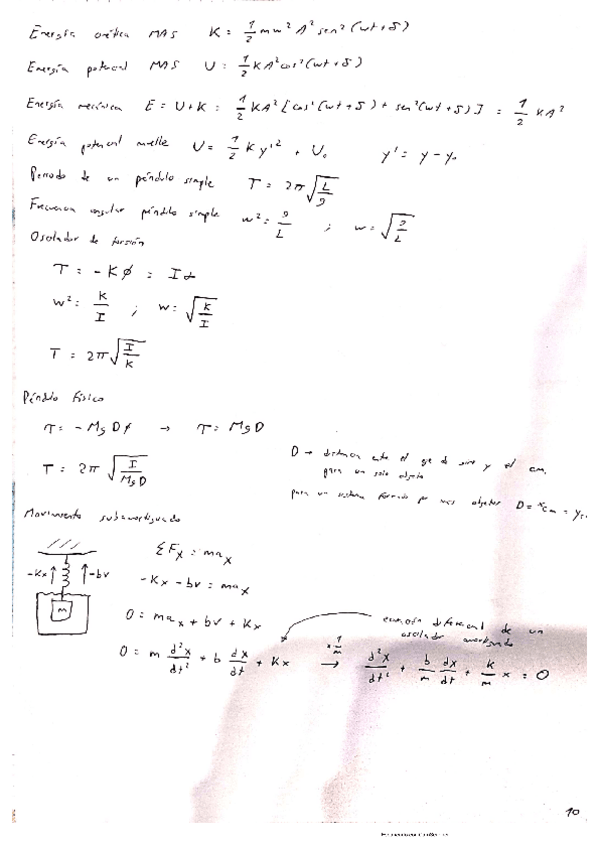 Energía cinética MAS K = 1/2 m w² A² sen² (wt + δ)
Energía potencial MAS U = 1/2 K A² cos² (wt + δ)
Energía mecánica E = U + K = 1/2 K A² [cos² (wt + δ) + sen² (wt + δ)] = 1/2 K A²
Energía potencial muelle U = 1/2 K y'² + U₀ y' = y - y₀
Periodo de un péndulo simple T = 2π √(L/g)
Frecuencia angular péndulo simple w² = g/L ; w = √(g/L)
Oscilador de torsión
τ = - K φ = I α
w² = K/I ; w = √(K/I)
T = 2π √(I/K)
Péndulo físico
τ = - M g D φ → τ = M g D
T = 2π √(I/MgD)
D → distancia entre el eje de giro y el cm.
para un solo objeto
para un sistema formado por más objetos D = x cm = y
Movimiento subamortiguado
ΣFx = max
-Kx ↑ ↑ -bv
-Kx - bv = max
m
0 = max + bv + Kx
ecuación diferencial de un
oscilador amortiguado
0 = m d²x/dt² + b dx/dt + Kx x 1/m → d²x/dt² + b/m dx/dt + K/m x = 0
10